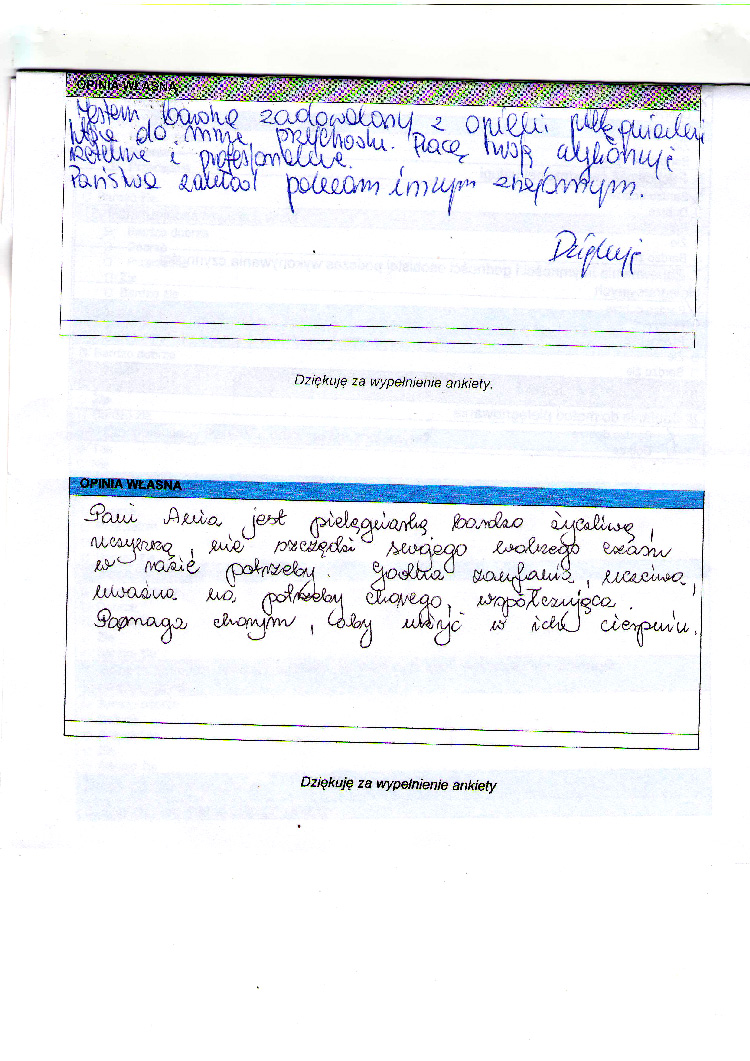 OPINIA WŁASNA
Jestem bardzo zadowolony z opieki pielęgniarki
która do mnie przychodzi. Pracę swoją wykonuje
rzetelnie i profesjonalnie.
Państwa zakład polecam innym znajomym.
Dziękuję
Dziękuję za wypełnienie ankiety.
OPINIA WŁASNA
Pani Ania jest pielęgniarką bardzo życzliwą,
uczynną, nie szczędzi swojego wolnego czasu
w razie potrzeby. Godna zaufania, uczciwa,
uważna na potrzeby chorego, współczująca.
Pomaga chorym, aby ulżyć w ich cierpniu.
Dziękuję za wypełnienie ankiety